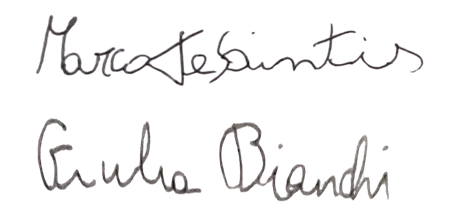 Marco De Santis
Giulia Bianchi